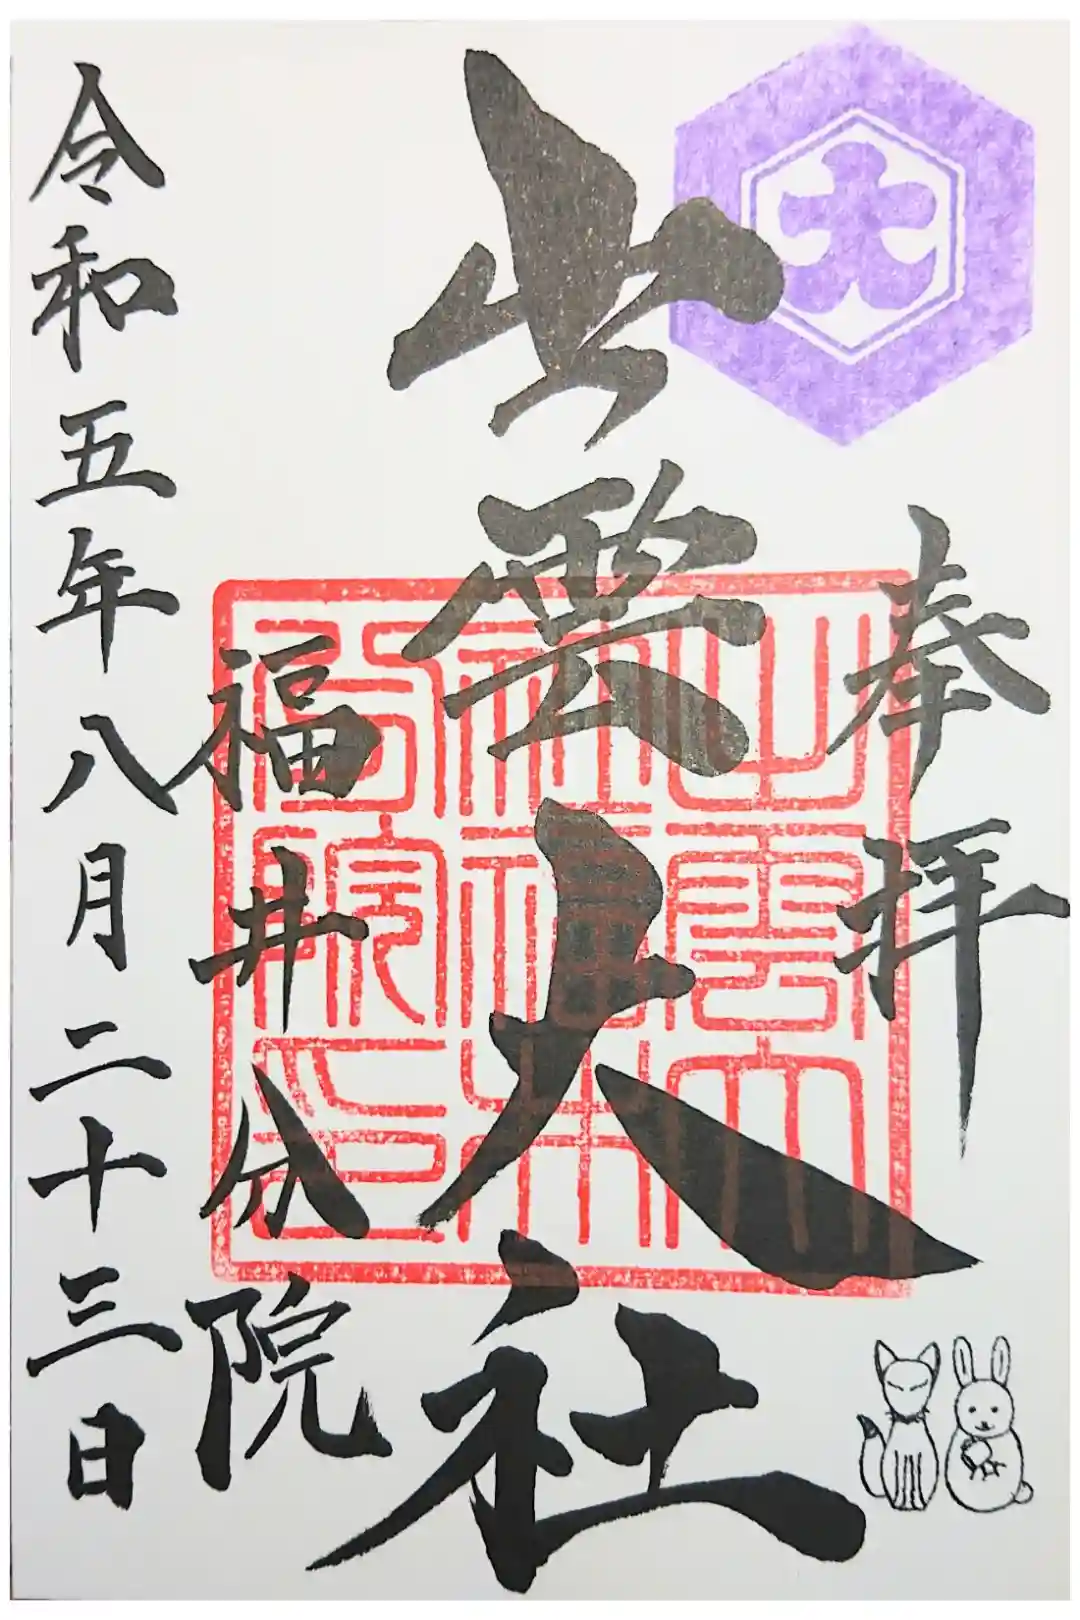 奉拝
出雲大社
福井分院
令和五年八月二十三日
大
出雲大
社福井
分院之印